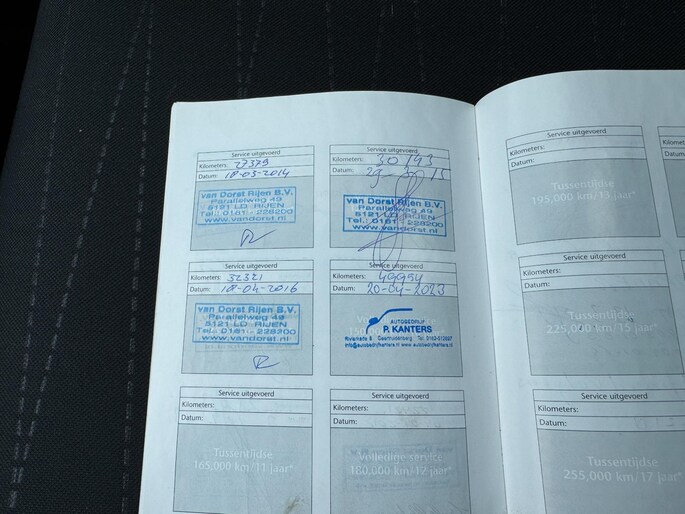 Service uitgevoerd
Kilometers: 27379
Datum: 18-03-2014
van Dorst Rijen B.V.
Parallelweg 49
5121 LD RIJEN
Tel.: 0161 - 228200
www.vandorst.nl
Service uitgevoerd
Kilometers: 30193
Datum:
van Dorst Rijen B.V.
Parallelweg 49
5121 LD RIJEN
Tel.: 0161 - 228200
www.vandorst.nl
Service uitgevoerd
Kilometers: 32321
Datum: 18-04-2016
van Dorst Rijen B.V.
Parallelweg 49
5121 LD RIJEN
Tel.: 0161 - 228200
www.vandorst.nl
Service uitgevoerd
Kilometers: 49954
Datum: 20-04-2023
AUTOBEDRIJF
P. KANTERS
Geertruidenberg
Service uitgevoerd
Kilometers:
Datum:
Tussentijdse
165,000 km/11 jaar*
Service uitgevoerd
Kilometers:
Datum:
Volledige service
180,000 km/12 jaar*
Service uitgevoerd
Kilometers:
Datum:
Tussentijdse
195,000 km/13 jaar*
Service uitgevoerd
Kilometers:
Datum:
Tussentijdse
225,000 km/15 jaar*
Service uitgevoerd
Kilometers:
Datum:
Tussentijdse
255,000 km/17 jaar*